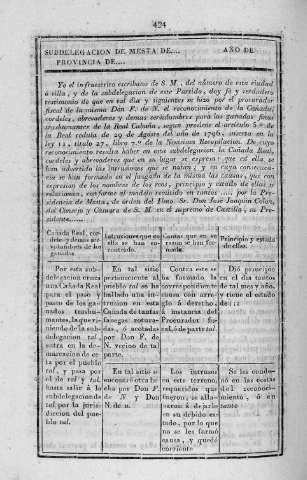 424
SUBDELEGACION DE MESTA DE.... AÑO DE
PROVINCIA DE....
Yo el infraescrito escribano de S. M., del número de esta ciudad
ó villa, y de la subdelegacion de este Partido, doy fe y verdadero
testimonio de que en tal dia y siguientes se hizo por el procurador
fiscal de la misma Don F. de N. el reconocimiento de la Cañadas,
cordeles, abrevaderos y demas servidumbres para los ganados finos
trashumantes de la Real Cabaña, segun previene el artículo 5.º de
la Real cédula de 29 de Agosto del año de 1796, inserta en la
ley 11, título 27, libro 7.º de la Novísima Recopilacion. De cuyo
reconocimiento resulta haber en esta subdelegacion la Cañada Real,
cordeles y abrevaderos que en su lugar se expresa: que en ella se
han advertido las intrusiones que se notan, y en cuya consecuencia
se han formado en el juzgado de la misma las causas, que con
expresion de los nombres de los reos, principio y estado de ellas se
relacionan, conforme al modelo remitido en tantos .... por la Presidencia
de Mesta, de órden del Ilmo. Sr. Don José Joaquin Colon,
del Consejo y Cámara de S. M. en el supremo de Castilla, su Presidente
Cañada Real, cordeles
y demas servidumbres
de los
ganados
Intrusiones que en
ella se han
encontrado.
Causas que en su
razon se han formado.
Principio y estado
de ellas.
Por esta subdelegacion
cruza
una Cañada Real
para el paso y
pasto de los ganados
trashumantes,
la que viniendo
de la subdelegacion
tal,
entra en la demarcacion
de esta
por el pueblo
tal, y pasa por
el de tal y tal,
hasta salir á la
subdelegacion de
tal por la jurisdiccion
del pueblo
tal.
En tal sitio
perteneciente al
pueblo tal se ha
hallado una intrusion
en esta
Cañada de tantas
fanegas roturadas,
ó acotadas
por Don F. de
N. vecino de tal
parte.
En tal sitio se
encontró otra hecha
por Don F.
de N y Don
N. de N.
Contra este se
ha formado la
correspondiente
causa con arreglo
á derecho
á instancia del
Procurador fiscal,
ó de parte tal.
Los intrusos
en estos terrenos
requeridos que
fueron, se allanaron
á dejarlo
en su debido estado,
por lo que
no se les formó
causa, y quedó
corriente
Dió principio
en el dia tantos
de tal mes y año,
y tiene el estado
de : : :
Se les condenó
en las costas
del reconocimiento,
ó en
tanto